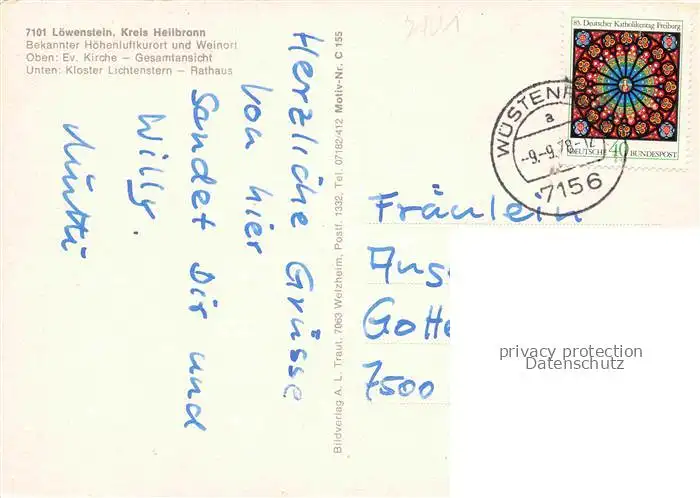 7101 Löwenstein, Kreis Heilbronn
Bekannter Höhenluftkurort und Weinort
Oben: Ev. Kirche — Gesamtansicht
Unten: Kloster Lichtenstern — Rathaus
Herzliche Grüsse
von hier
Sendet Dir und
Willy.
Mutti
Bildverlag A. L. Traut, 7063 Welzheim, Postf. 1332, Tel. 07182/412 Motiv-Nr. C 155
85. Deutscher Katholikentag Freiburg
DEUTSCHE 40 BUNDESPOST
a
-9.-9.78-12
7156
Fräulein
7500
privacy protection
Datenschutz